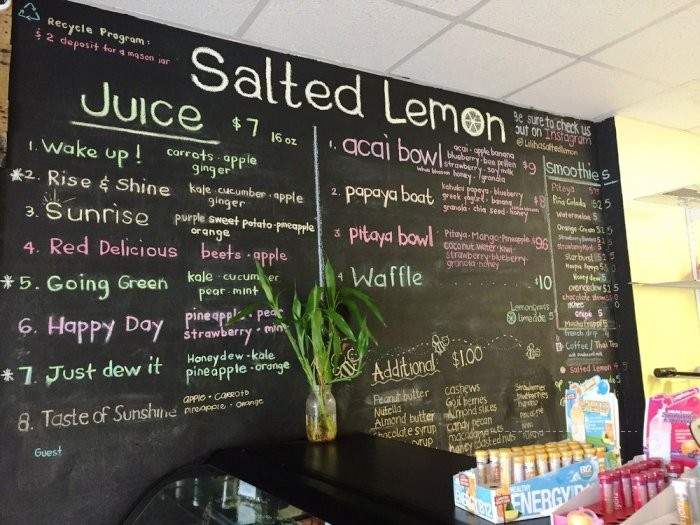 Recycle Program:
$2 deposit for a mason jar
Salted Lemon
Be sure to check us
out on Instagram
@Lilihasaltedlemon
Juice $7 16 oz
1. Wake up! carrots · apple
ginger
*2. Rise & Shine kale · cucumber · apple
ginger
3. Sunrise purple sweet potato · pineapple
orange
4. Red Delicious beets · apple
*5. Going Green kale · cucumber
pear · mint
6. Happy Day pineapple · pear
strawberry · mint
*7. Just dew it Honeydew · kale
pineapple · orange
8. Taste of Sunshine apple · carrots
pineapple · orange
Guest
1. acai bowl acai · apple banana
blueberry · bee pollen
strawberry · soy milk
honey / granola
$9
2. papaya boat kahuku papaya · blueberry
greek yogurt · banana
granola · chia seed · honey
$8
3. pitaya bowl Pitaya · Mango · Pineapple
coconut water · kiwi
strawberry · blueberry
granola · honey
4 Waffle $10
Lemongrass
limeade
Additional $1.00
Peanut butter
Nutella
Almond butter
Chocolate syrup
syrup
cashews
Goji berries
Almond slices
candy pecan
macadamia nuts
honey roasted nuts
Strawberries
blueberries
Smoothie 5
Pitaya
Pina Colada
Watermelon
Orange-Cream
Starburst
Honeydew
Mocha frappe
Coffee / Thai Tea
Salted Lemon
HEALTHY
ENERGY